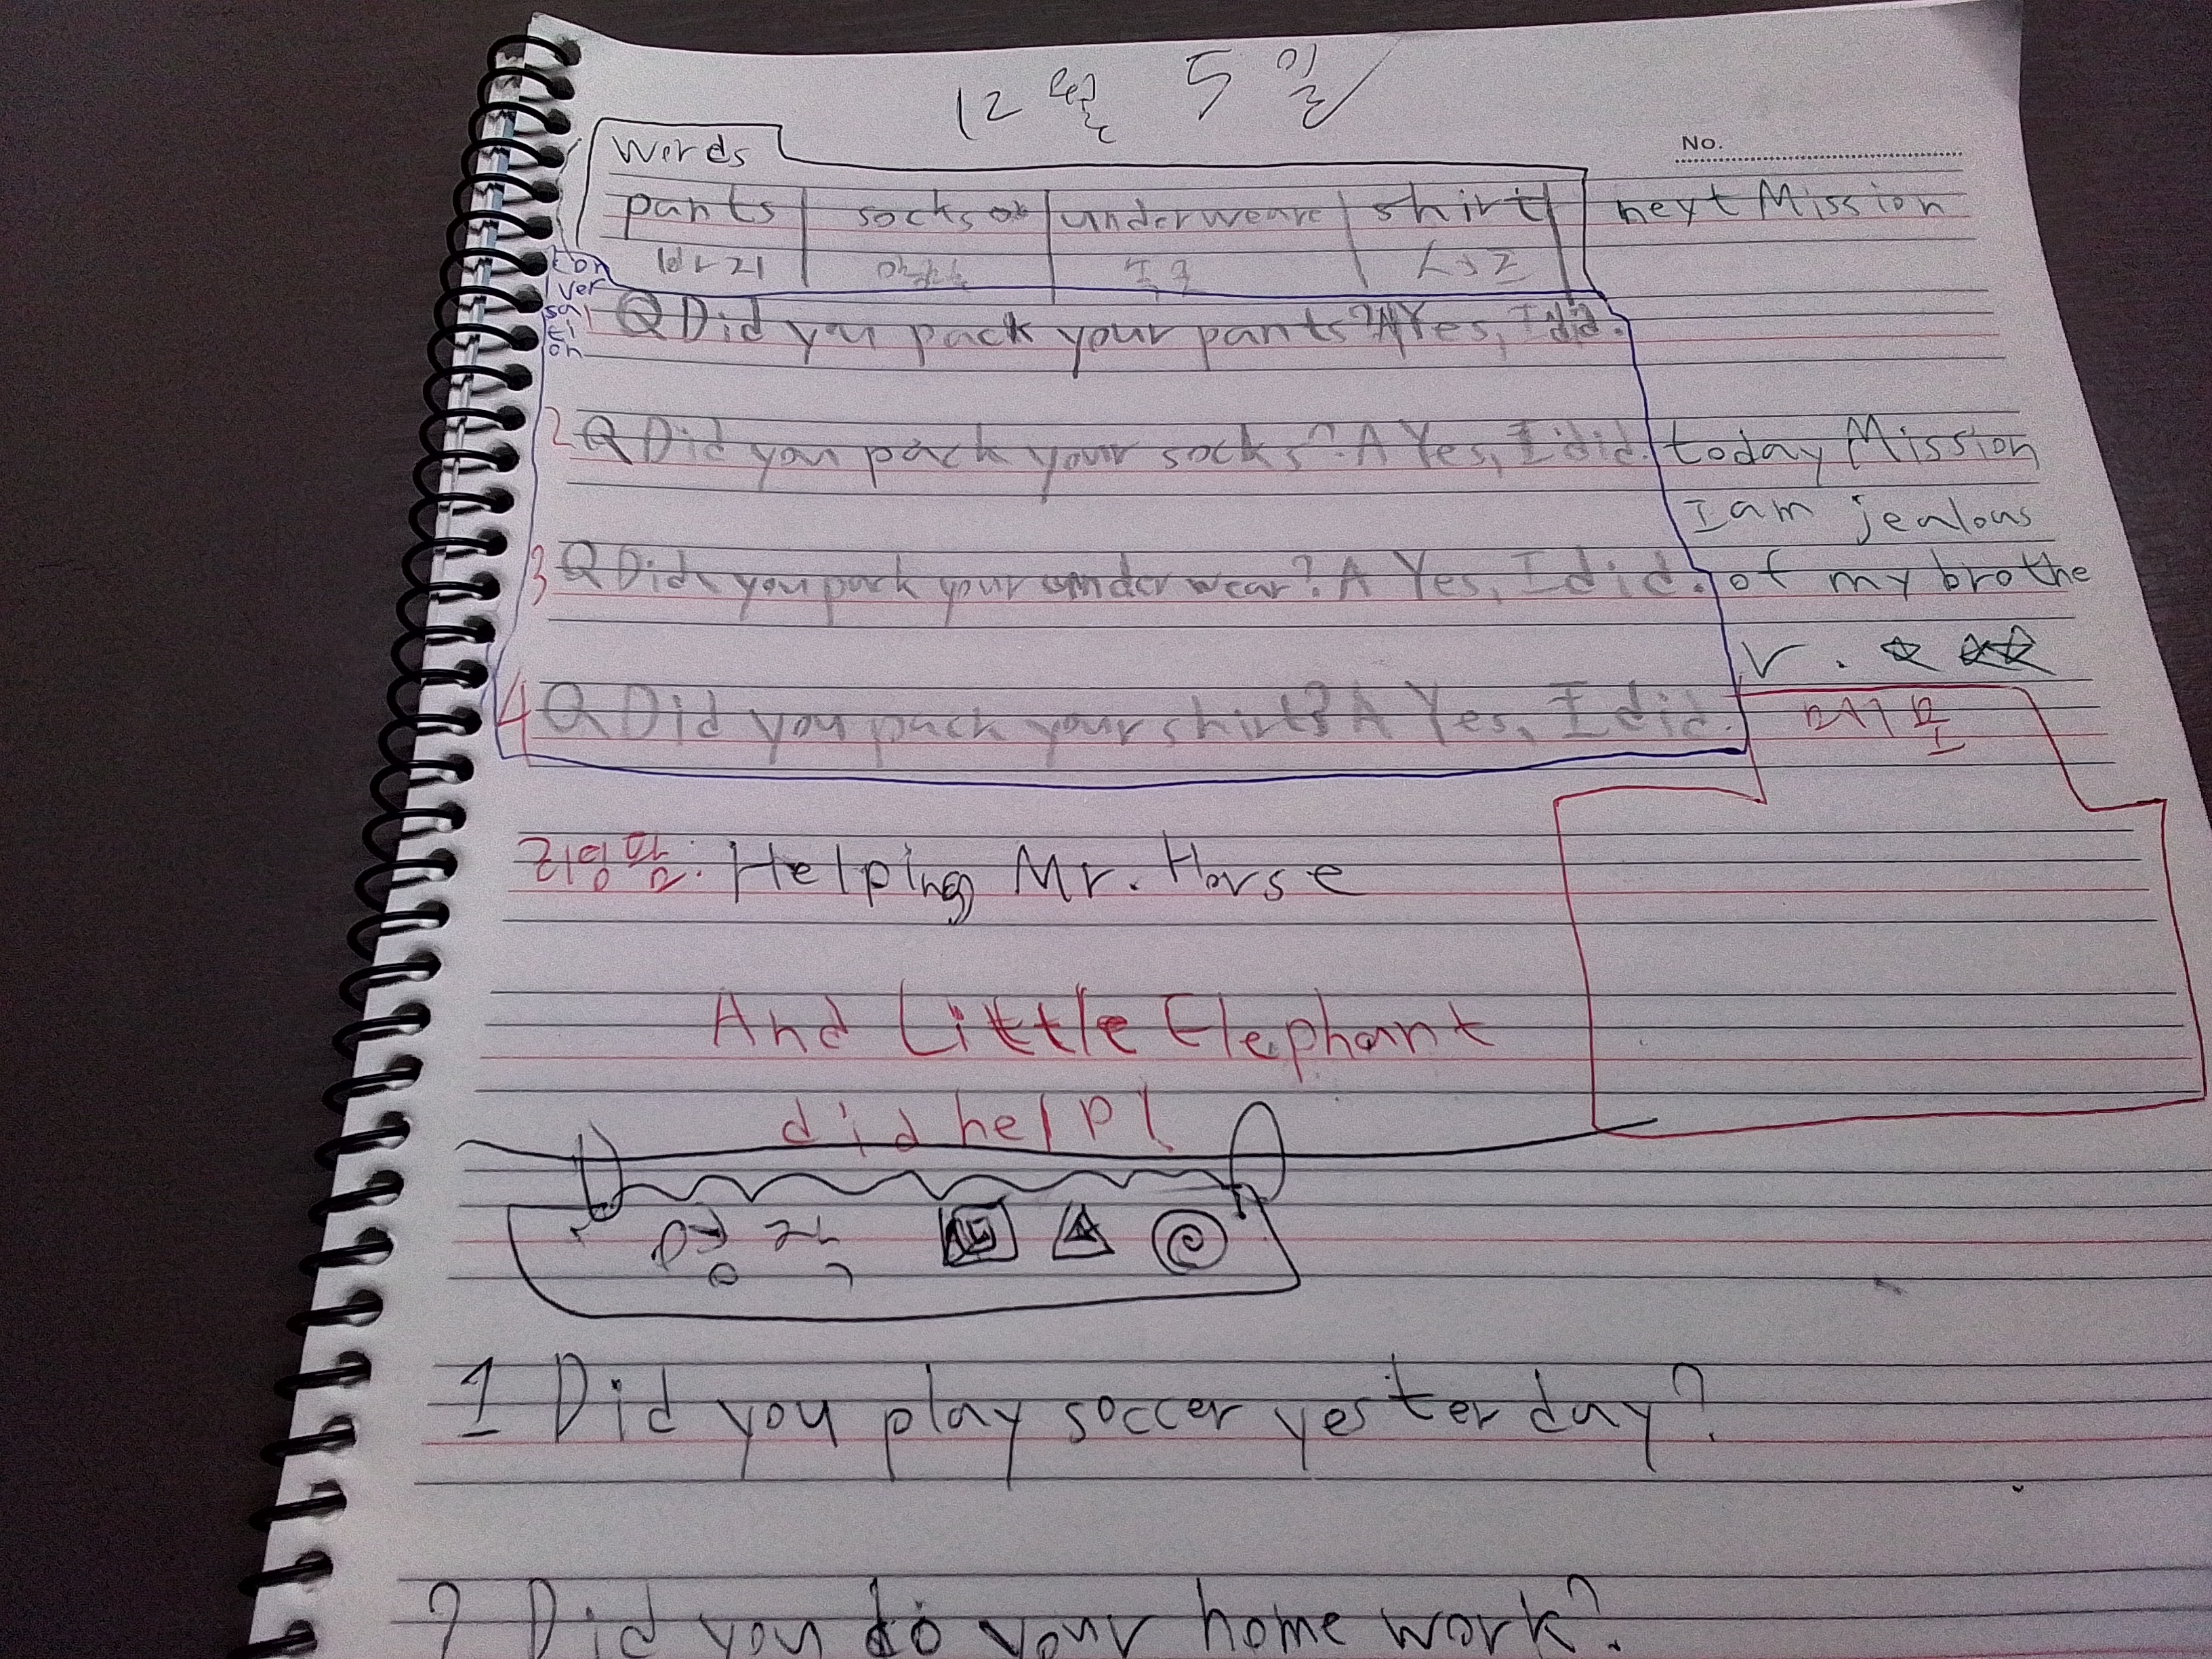 12월 5일
No.
words
pants socks underweare shirt
바지 양말 속옷 셔츠
next Mission
con
ver
sa
ti
on
Q Did you pack your pants? A Yes, I did.
2 Q Did you pack your socks? A Yes, I did.
today Mission
I am jealous
3 Q Did you pack your under wear? A Yes, I did.
of my brothe
r.
4 Q Did you pack your shirts? A Yes, I did.
리잉팍: Helping Mr. Horse
And Little Elephant
did help!
1 Did you play soccer yesterday?
2 Did you do your home work?